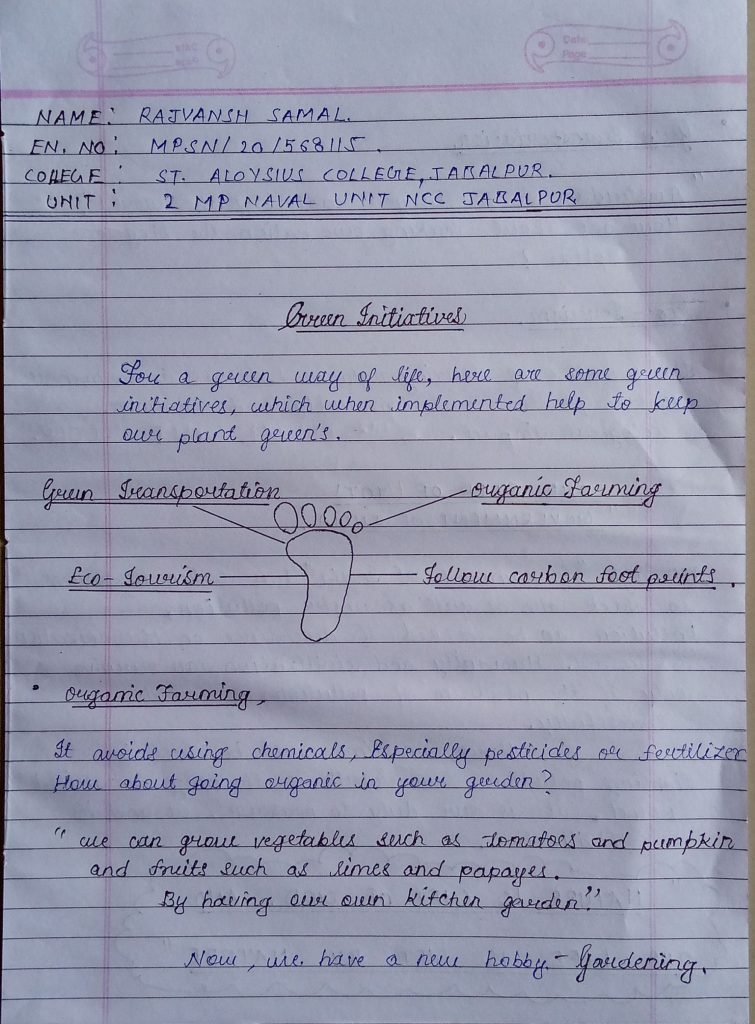 Date
Page
NAME: RAJVANSH SAMAL.
EN. NO: MPSN/20/568115.
COLLEGE: ST. ALOYSIUS COLLEGE, JABALPUR.
UNIT: 2 MP NAVAL UNIT NCC JABALPUR
Green Initiatives
For a green way of life, here are some green
initiatives, which when implemented help to keep
our plant green's.
Green Transportation
organic Farming
Eco-Tourism
Follow carbon foot prints.
• organic Farming,
It avoids using chemicals, Especially pesticides or fertilizer
How about going organic in your garden?
" we can grow vegetables such as tomatoes and pumpkin
and fruits such as limes and papayes.
By having our own kitchen garden."
Now, we have a new hobby. - Gardening.